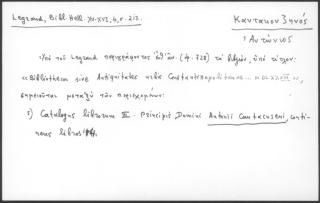 Legrand, Bibl. Hell. XV-XVI, 4, σ. 213.
Καντακουζηνός
Ἀντώνιος
Ὑπὸ τοῦ Legrand περιγράφονται (4. 728) τὸ βιβλίον, ὑπὸ τίτλον:
«Bibliotheca sive Antiquitates urbis Constantinopolitanae...
σημειοῦται μεταξὺ τῶν περιεχομένων:
Catalogus librorum III. Principis Domini Antonii Cantacuseni, conti-
nens libros